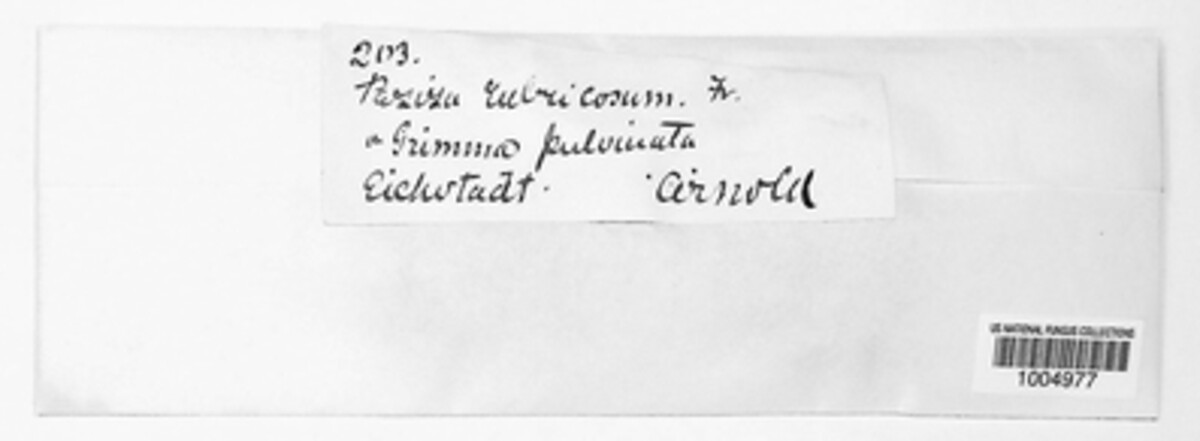 203.
Peziza rubricosum. Fr.
a Grimmia pulvinata
Eichstadt. Arnold
US NATIONAL FUNGUS COLLECTIONS
1004977